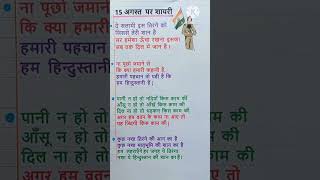 15 अगस्त पर शायरी
दे सलामी इस तिरंगे को
जिससे तेरी शान है
सर हमेशा ऊँचा रखना इसका
जब तक दिल में जान है।
ना पूछो जमाने से
कि क्या हमारी कहानी है
हमारी पहचान तो यही है कि
हम हिन्दुस्तानी हैं।
पानी न हो तो नदियाँ किस काम की
आँसू न हो तो आँखें किस काम की
दिल ना हो तो धड़कन किस काम की
अगर हम वतन के काम ना आए तो
यह जिंदगी किस काम की।
कुछ नशा तिरंगे की आन का है
कुछ नशा मातृभूमि की शान का है
हम लहरायेंगे हर जगह ये तिरंगा
नशा ये हिन्दुस्तान की शान का है।
हमारी पहचान
आँसू न हो
दिल ना हो तो